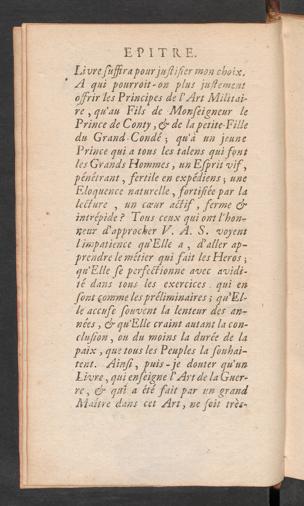 EPITRE.
Livre ſuffira pour juſtifier mon choix.
A qui pourroit-on plus juſtement
offrir les Principes de l'Art Militai-
re, qu'au Fils de Monſeigneur le
Prince de Conty, & de la petite-Fille
du Grand Condé; qu'à un jeune
Prince qui a tous les talens qui font
les Grands Hommes, un Eſprit vif,
pénétrant, fertile en expédiens; une
Eloquence naturelle, fortifiée par la
lecture, un cœur actif, ferme &
intrépide? Tous ceux qui ont l'hon-
neur d'approcher V. A. S. voyent
l'impatience qu'Elle a, d'aller ap-
prendre le métier qui fait les Heros;
qu'Elle ſe perfectionne avec avidi-
té dans tous les exercices qui en
ſont comme les préliminaires; qu'El-
le accuſe ſouvent la lenteur des an-
nées, & qu'Elle craint autant la con-
cluſion, ou du moins la durée de la
paix, que tous les Peuples la ſouhai-
tent. Ainſi, puis-je douter qu'un
Livre, qui enſeigne l'Art de la Guer-
re, & qui a été fait par un grand
Maître dans cet Art, ne ſoit très-